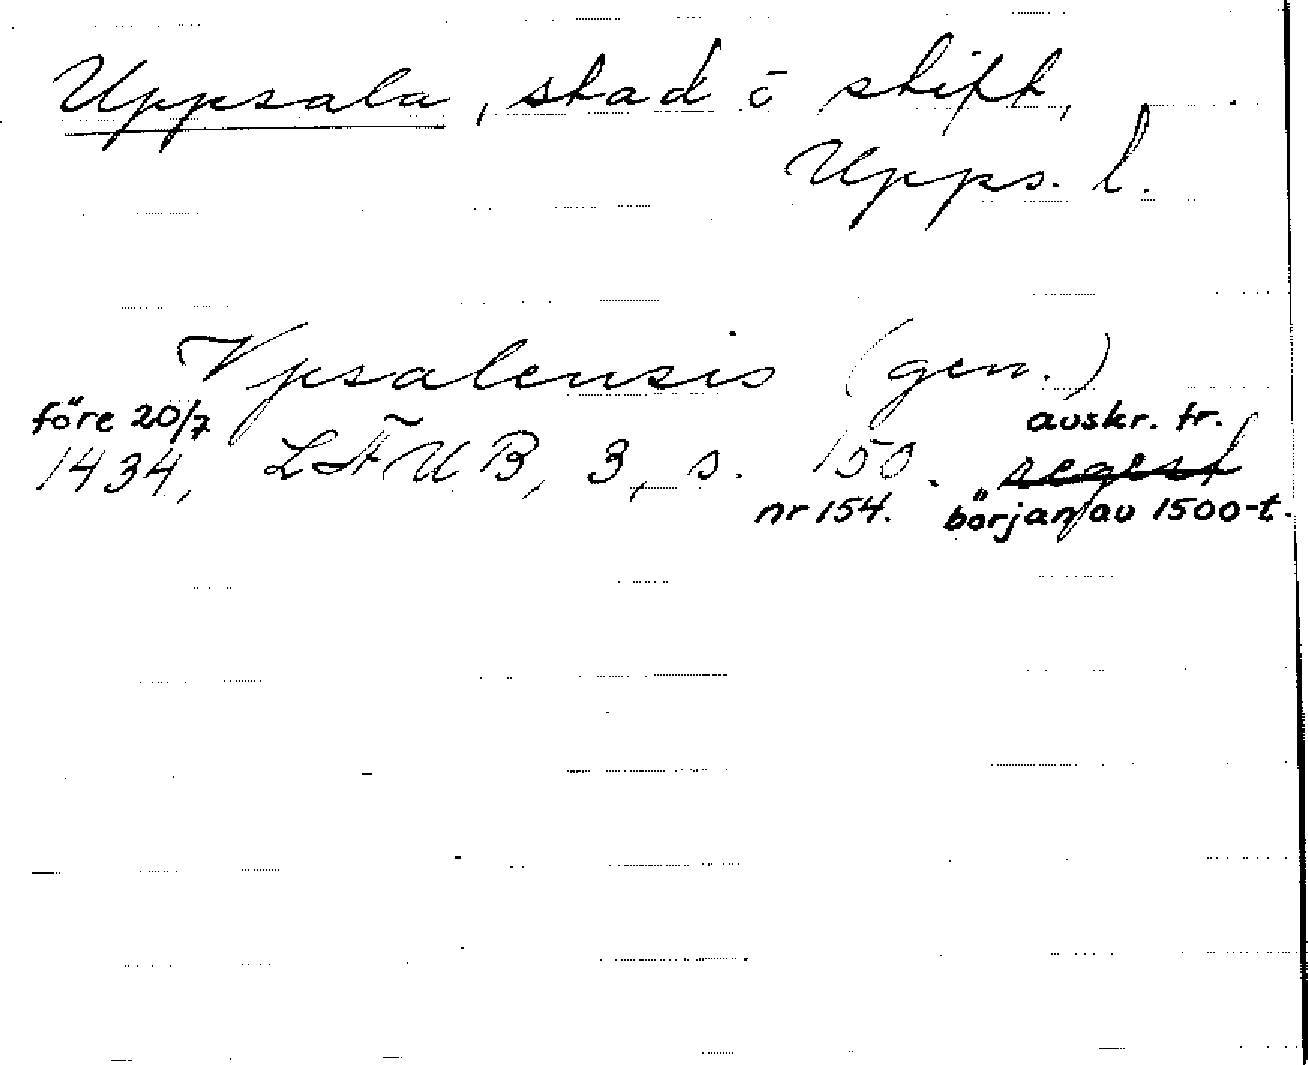 Uppsala, stad o stift,
Upps. l.
Vpsalensis (gen.)
före 20/7 avskr. fr.
1434, LFÄUB, 3, s. 150. regest
nr 154. början av 1500-t.